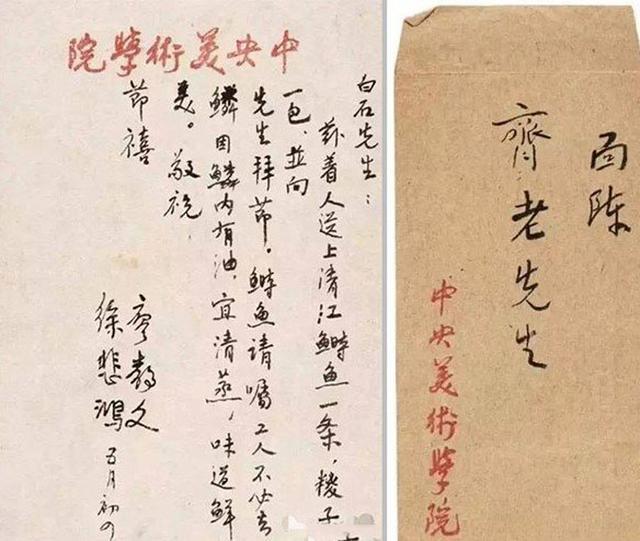 中央美術學院
白石先生：
兹着人送上清江鰣魚一条，糉子
一包，並向
先生拜節。鰣魚请嘱工人不必去
鱗因鱗内有油，宜清蒸，味道鮮
美。敬祝
節禧
廖静文
徐悲鴻 五月初四
面陈
齊老先生
中央美術學院